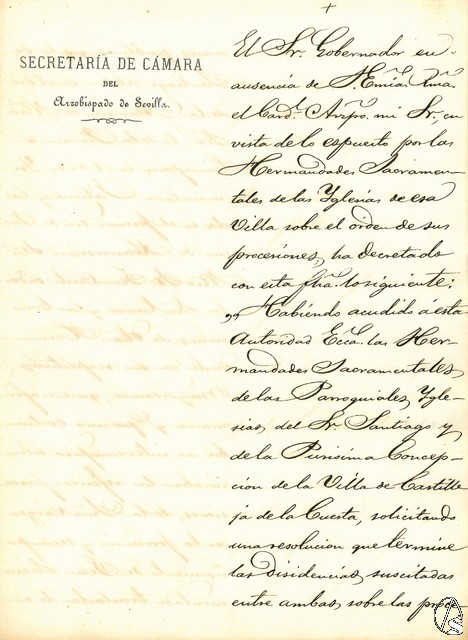 +
SECRETARÍA DE CÁMARA
DEL
Arzobispado de Sevilla.
El Sr. Gobernador en
ausencia de S. Emía. Rma.
el Cardl. Arzpo. mi Sr., en
vista de lo espuesto por las
Hermandades Sacramen-
tales de las Yglesias de esa
Villa sobre el orden de sus
procesiones, ha decretado
con esta fha. lo siguiente:
„ Habiendo acudido á esta
Autoridad Ecca. las Her-
mandades Sacramentales
de las Parroquiales Ygle-
sias del Sr. Santiago y
de la Purisima Concep-
cion de la Villa de Castille-
ja de la Cuesta, solicitando
una resolucion que termine
las disidencias suscitadas
entre ambas sobre las proce-